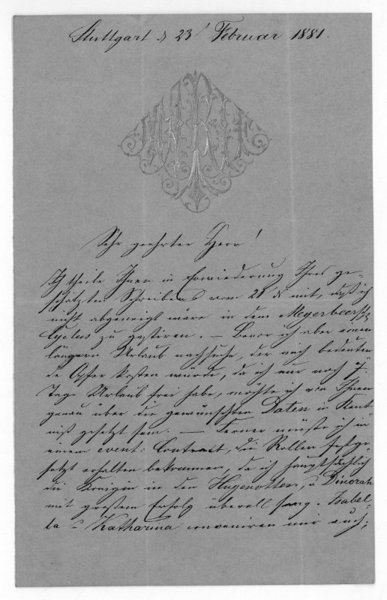 Stuttgart d 23' Februar 1881.
Sehr geehrter Herr!
Ich theile Ihnen in Erwiederung Ihres ge-
schätzten Schreibens vom 22 d mit, daß ich
nicht abgeneigt wäre in dem Meyerbeer
Cyclus zu gastiren. – Bevor ich aber einen
längern Urlaub nachsuche, der mich bedeuten-
de Opfer kosten würde, da ich nur noch
Tage Urlaub frei habe, möchte ich von Ihnen
genau über die gewünschten Daten in Kent-
niß gesetzt sein. – Ferner müßte ich in
einem event: Contract, die Rollen festge-
setzt erhalten bekommen, da ich hauptsächlich
die Königin in den Hugenotten, u Dinorah
mit großem Erfolg überall sang. Isabel-
la u Katharina conveniren mir auch;